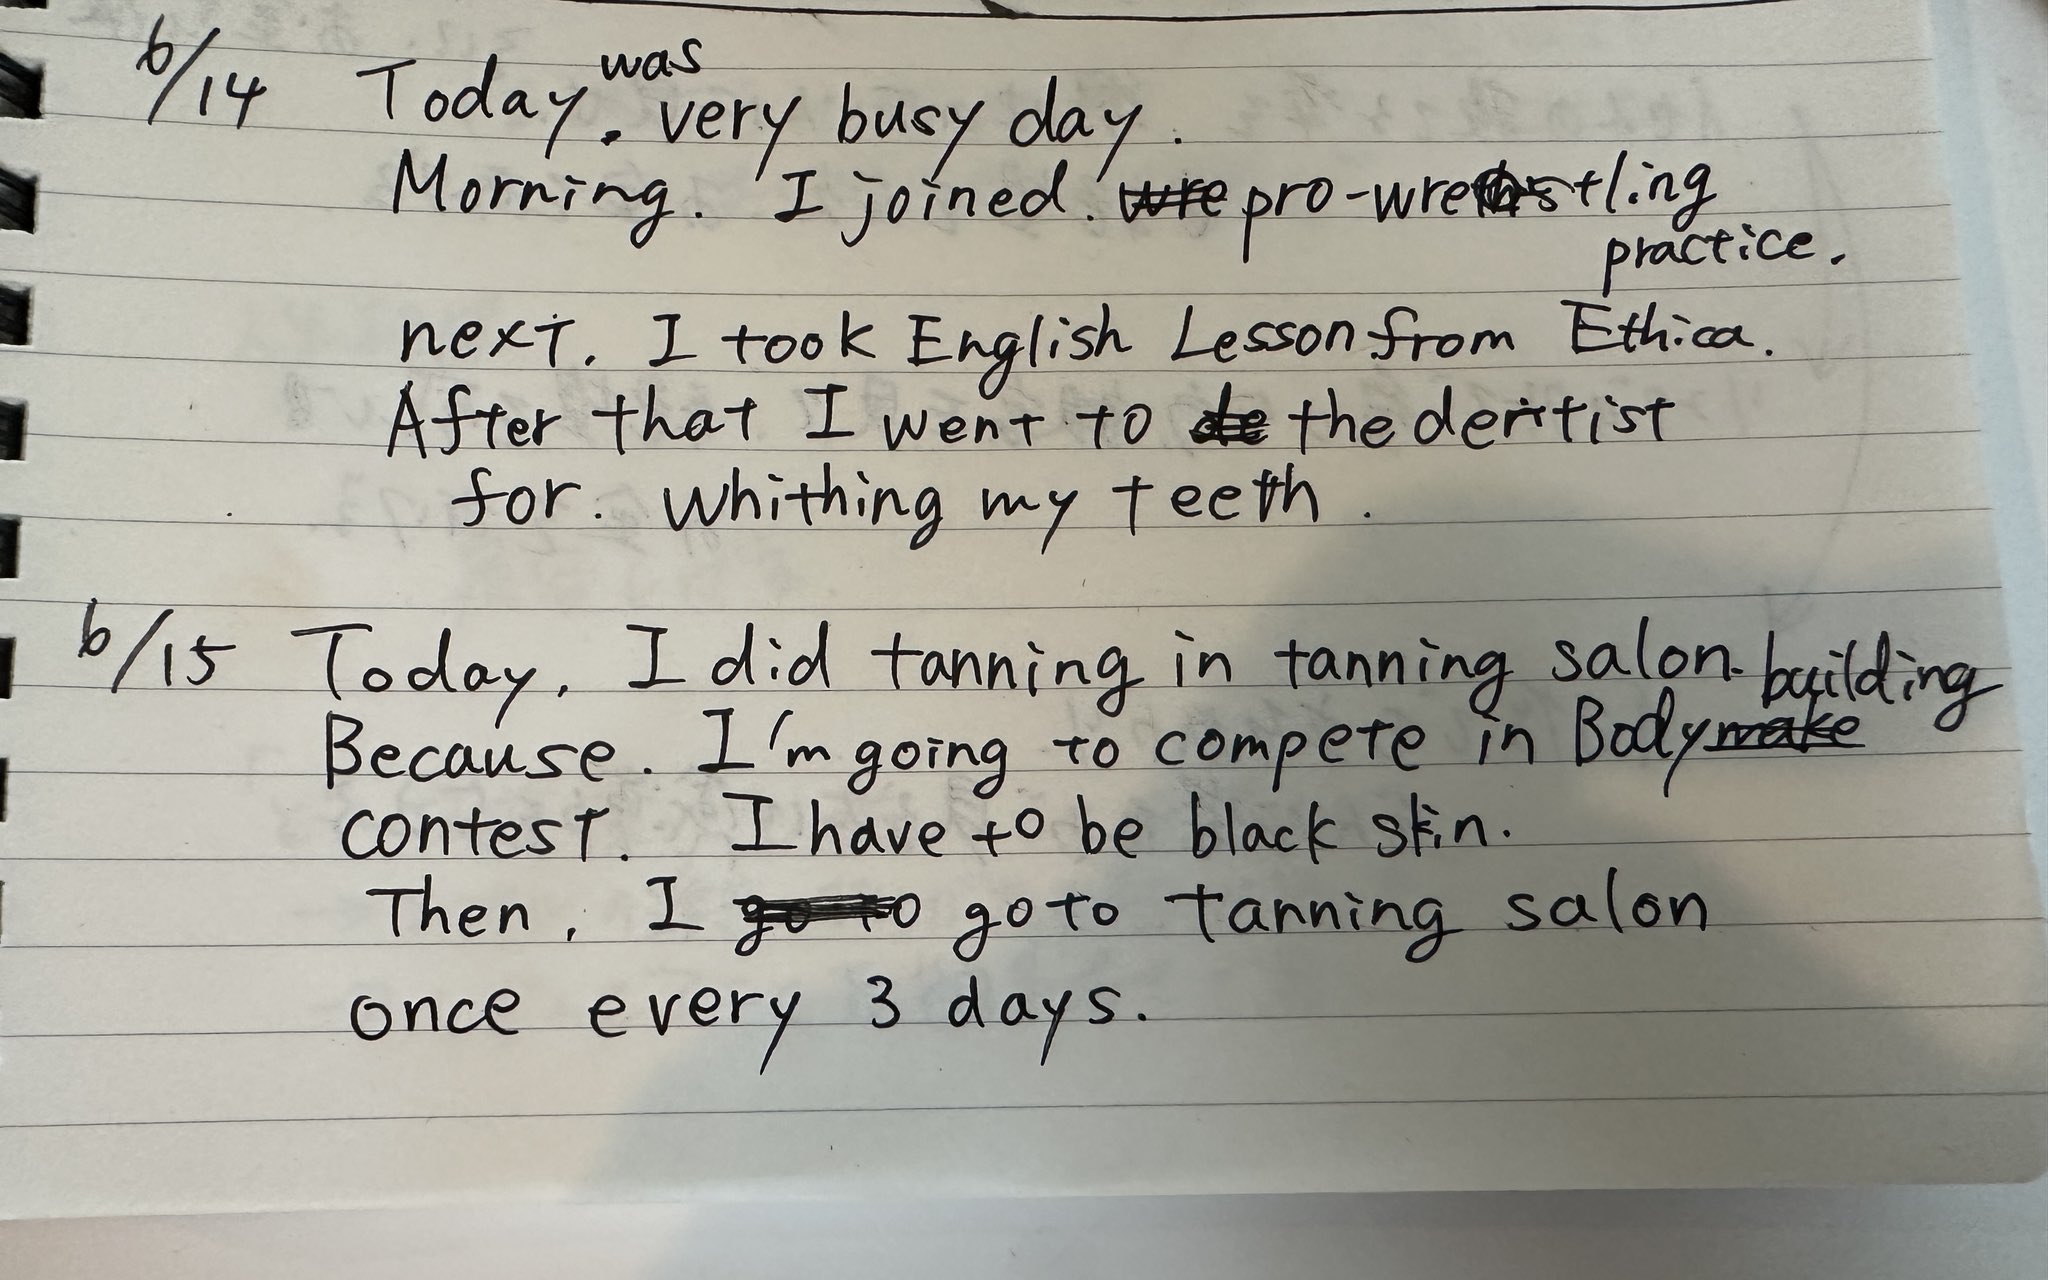 6/14 Today. was very busy day.
Morning. I joined. wre pro-wrestling
practice.
next. I took English Lesson from Ethica.
After that I went to de the dentist
for. whithing my teeth.
6/15 Today, I did tanning in tanning salon.
Because. I'm going to compete in Bodymake building
contest. I have to be black skin.
Then, I go to go to tanning salon
once every 3 days.